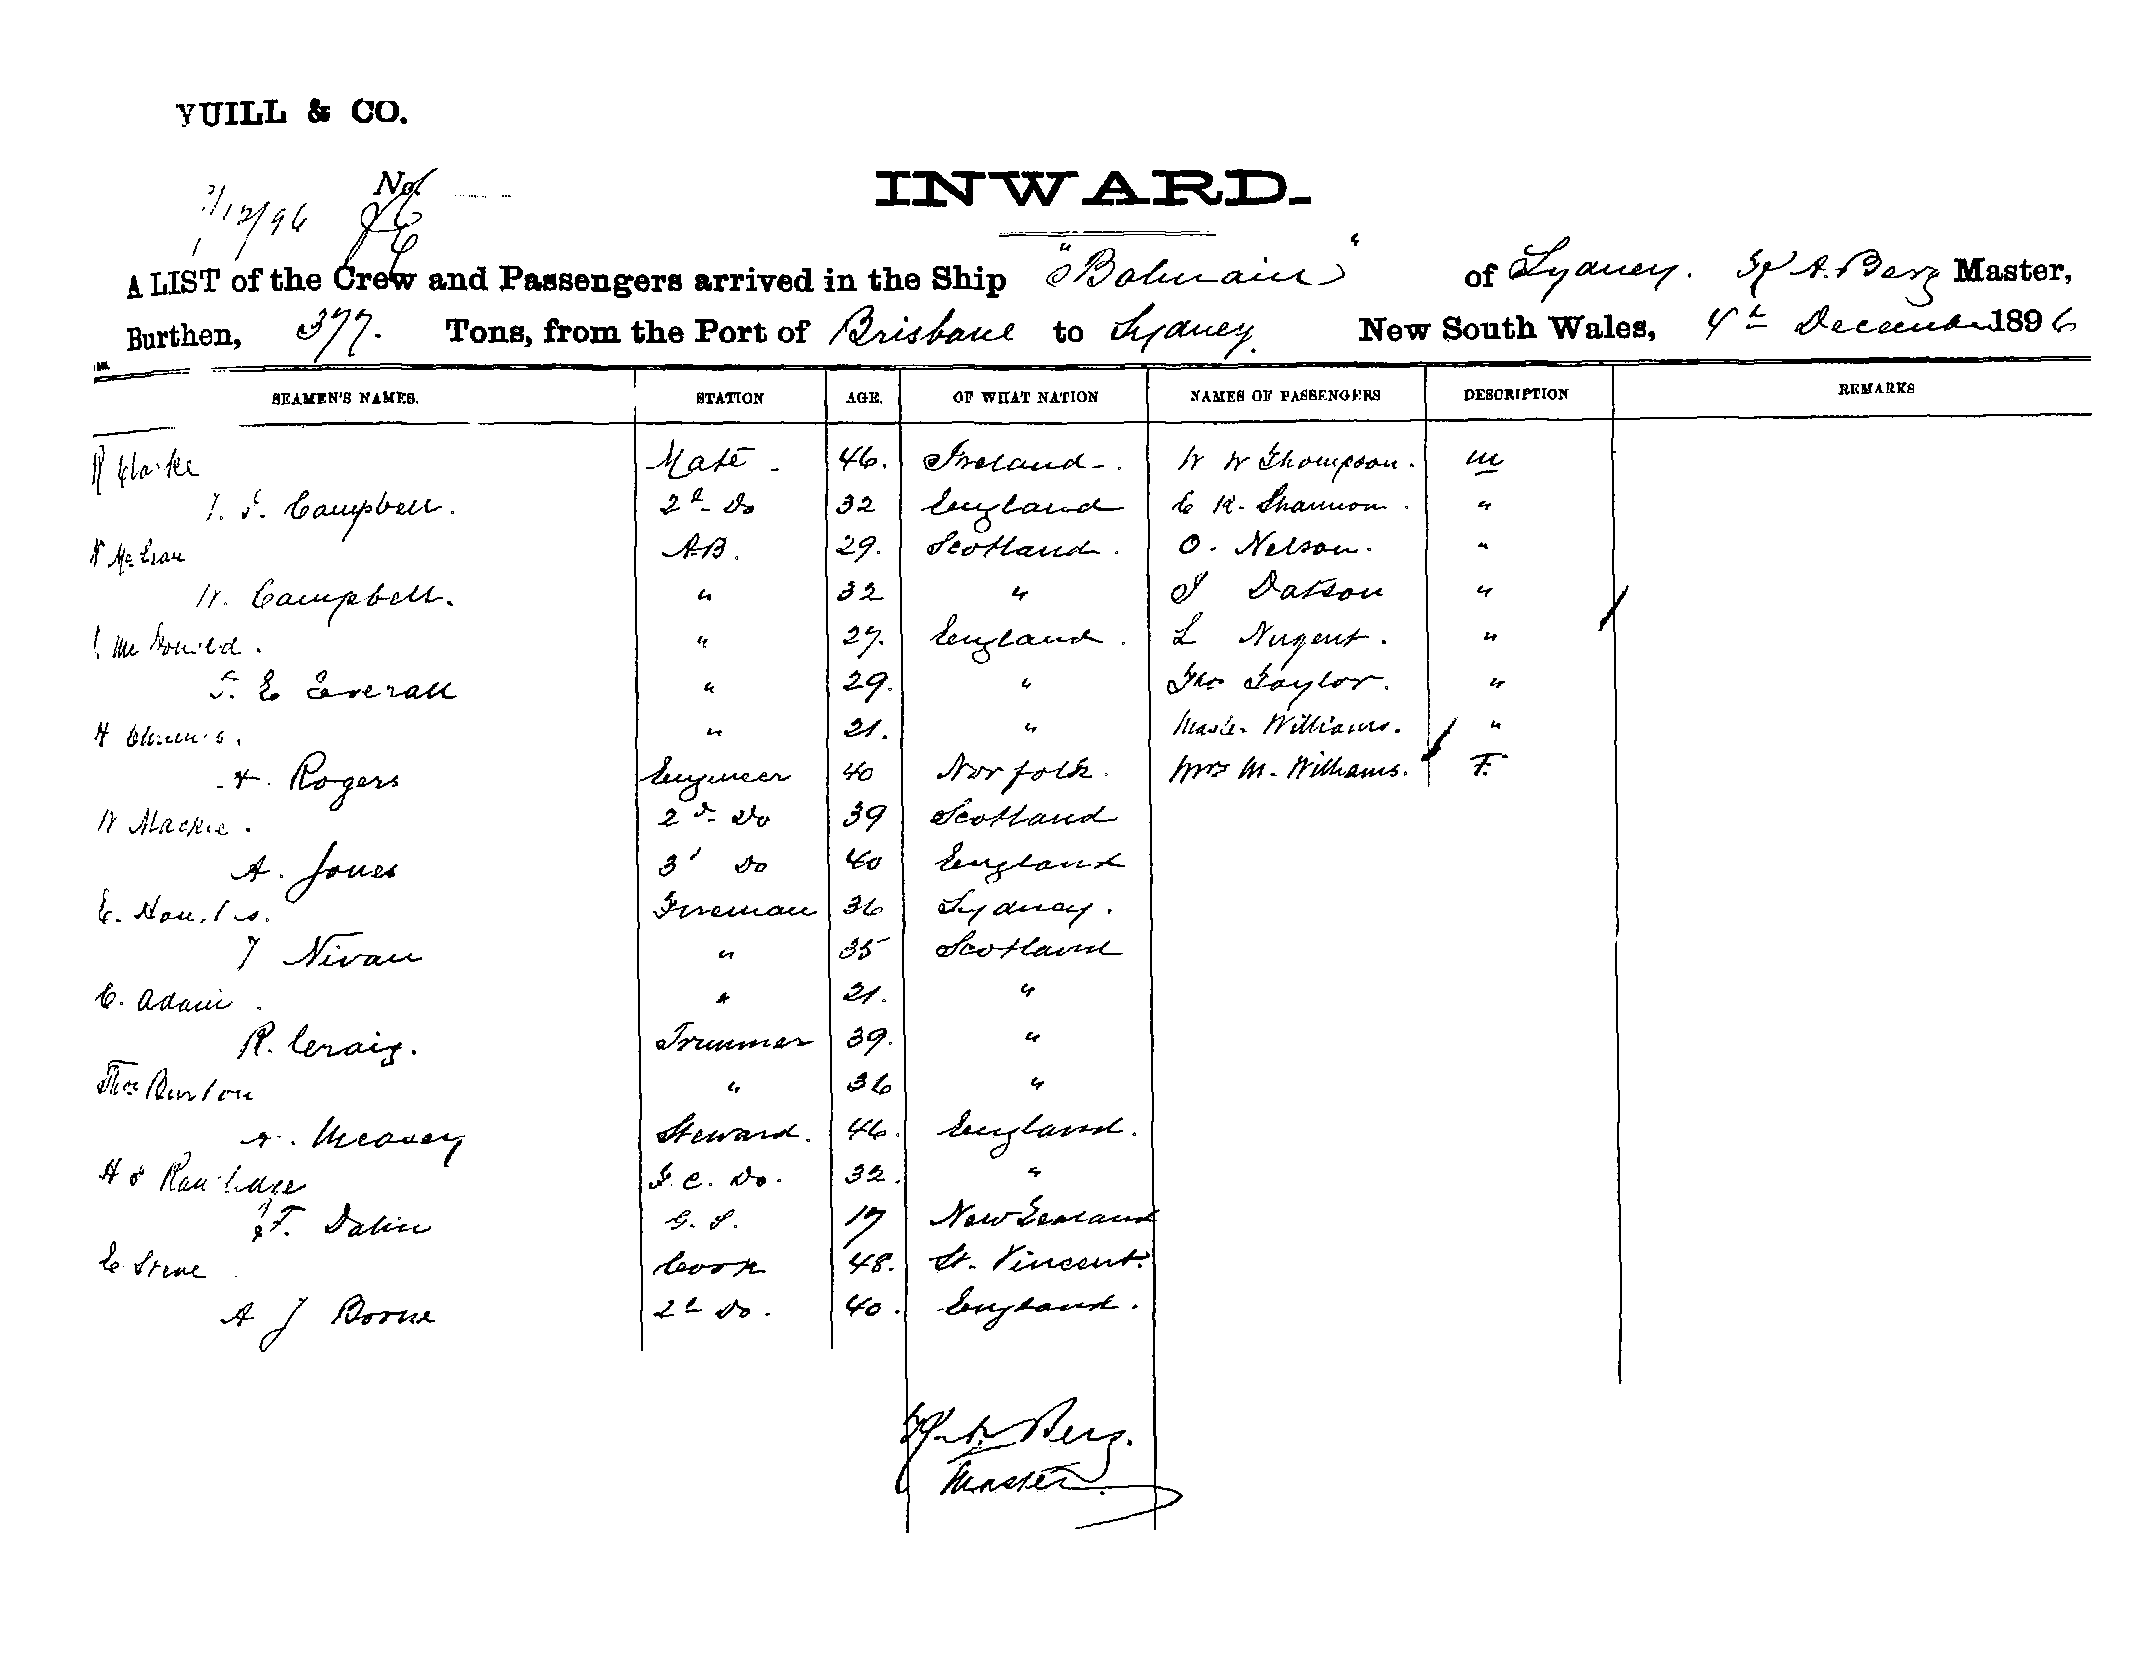 YUILL & CO.
No.
/12/96
INWARD.
A LIST of the Crew and Passengers arrived in the Ship "Balmain" of Sydney. A. Berg Master,
Burthen, 377. Tons, from the Port of Brisbane to Sydney. New South Wales, 4th December 1896
SEAMEN'S NAMES. STATION AGE. OF WHAT NATION NAMES OF PASSENGERS DESCRIPTION REMARKS
R Clarke Mate 46. Ireland. W W Thompson. m
Campbell. 2d Do 32 England C R. Shannon. "
AB. 29. Scotland. O. Nelson. "
W. Campbell. " 32 " Datson "
" 27. England. L Nugent. "
E Everall " 29. " Tho Taylor. "
H " 21. " Williams. "
Rogers Engineer 40 Norfolk. Mrs M. Williams. F.
W Mackie. 2d Do 39 Scotland
A. Jones 3d Do 40 England
E. Fireman 36 Sydney.
Nivan " 35 Scotland
C. Adam " 21. "
R. Craig. Trimmer 39. "
Thos Burton " 36 "
Measey Steward. 46. England.
H Do. 32. "
F. G. S. 17 New Zealand
C Cook 48. St. Vincent.
A J 2d Do. 40. England.
A. Berg.
Master.